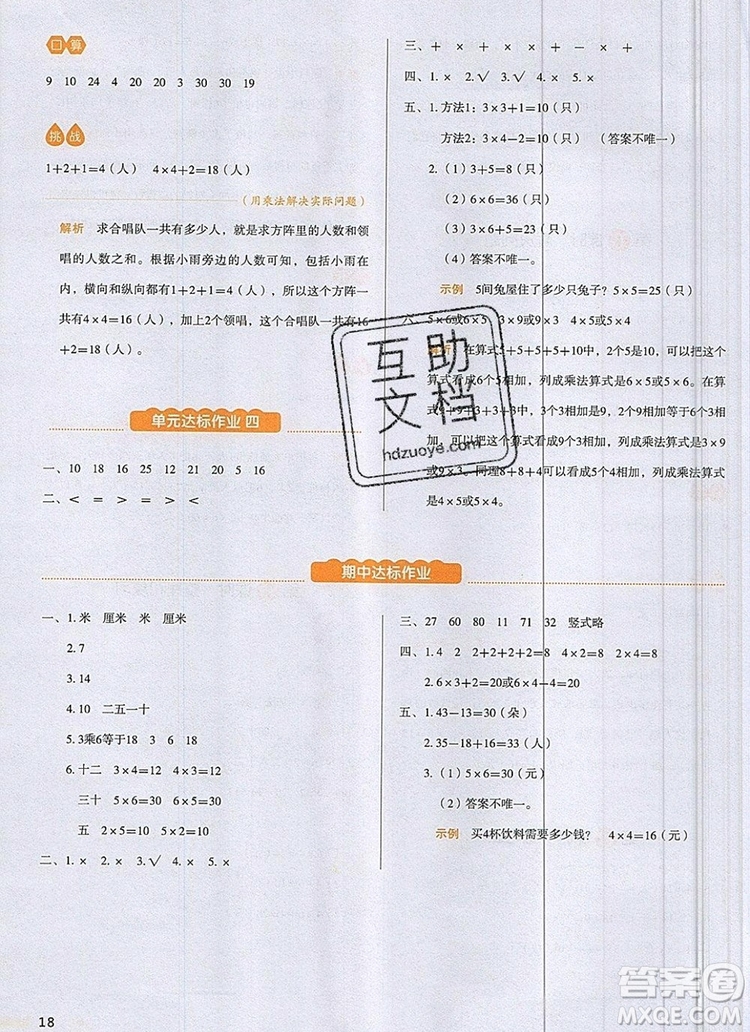 口算
9 10 24 4 20 20 3 30 30 19
挑战
1+2+1=4（人） 4×4+2=18（人）
（用乘法解决实际问题）
解析 求合唱队一共有多少人，就是求方阵里的人数和领
唱的人数之和。根据小雨旁边的人数可知，包括小雨在
内，横向和纵向都有1+2+1=4（人），所以这个方阵一
共有4×4=16（人），加上2个领唱，这个合唱队一共有16
+2=18（人）。
单元达标作业 四
一、10 18 16 25 12 21 20 5 16
二、< = > = > > > <
三、+ × + × × − × − × +
四、1. × 2. √ 3. √ 4. × 5. ×
五、1. 方法1：3×3+1=10（只）
方法2：3×4−2=10（只） （答案不唯一）
2.（1）3+5=8（只）
（2）6×6=36（只）
（3）6×4=24（只）
（4）答案不唯一。
示例 5间兔屋住了多少只兔子？ 5×5=25（只）
六、5×6或6×5 3×9或9×3 4×5或5×4
解析 在算式5+5+5+5+10中，2个5是10，可以把这
个算式看成6个5相加，列成乘法算式是6×5或5×6。在算
式9+9+3+3+3中，可以把这个算式看成
3个9相加，列成乘法算式是3×9或
9×3。同理8+4+4+4可以看成5个4相加，列成乘法算式是
4×5或5×4。
互助
文档
hdzuoye.com
期中达标作业
一、1. 米 厘米 米 厘米
2. 7
3. 14
4. 10 二五一十
5. 3乘6等于18 3 6 18
6. 十二 3×4=12 4×3=12
三十 5×6=30 6×5=30
五 2×5=10 5×2=10
二、1. × 2. × 3. √ 4. × 5. ×
三、27 60 80 11 71 32 竖式略
四、1. 4 2 2+2+2+2=8 4×2=8 2×4=8
2. 6×3+2=20或6×4−4=20
五、1. 43−13=30（朵）
2. 35−18+16=33（人）
3.（1）5×6=30（元）
（2）答案不唯一。
示例 买4杯饮料需要多少钱？ 4×4=16（元）
18
答案圈
MXQE.COM